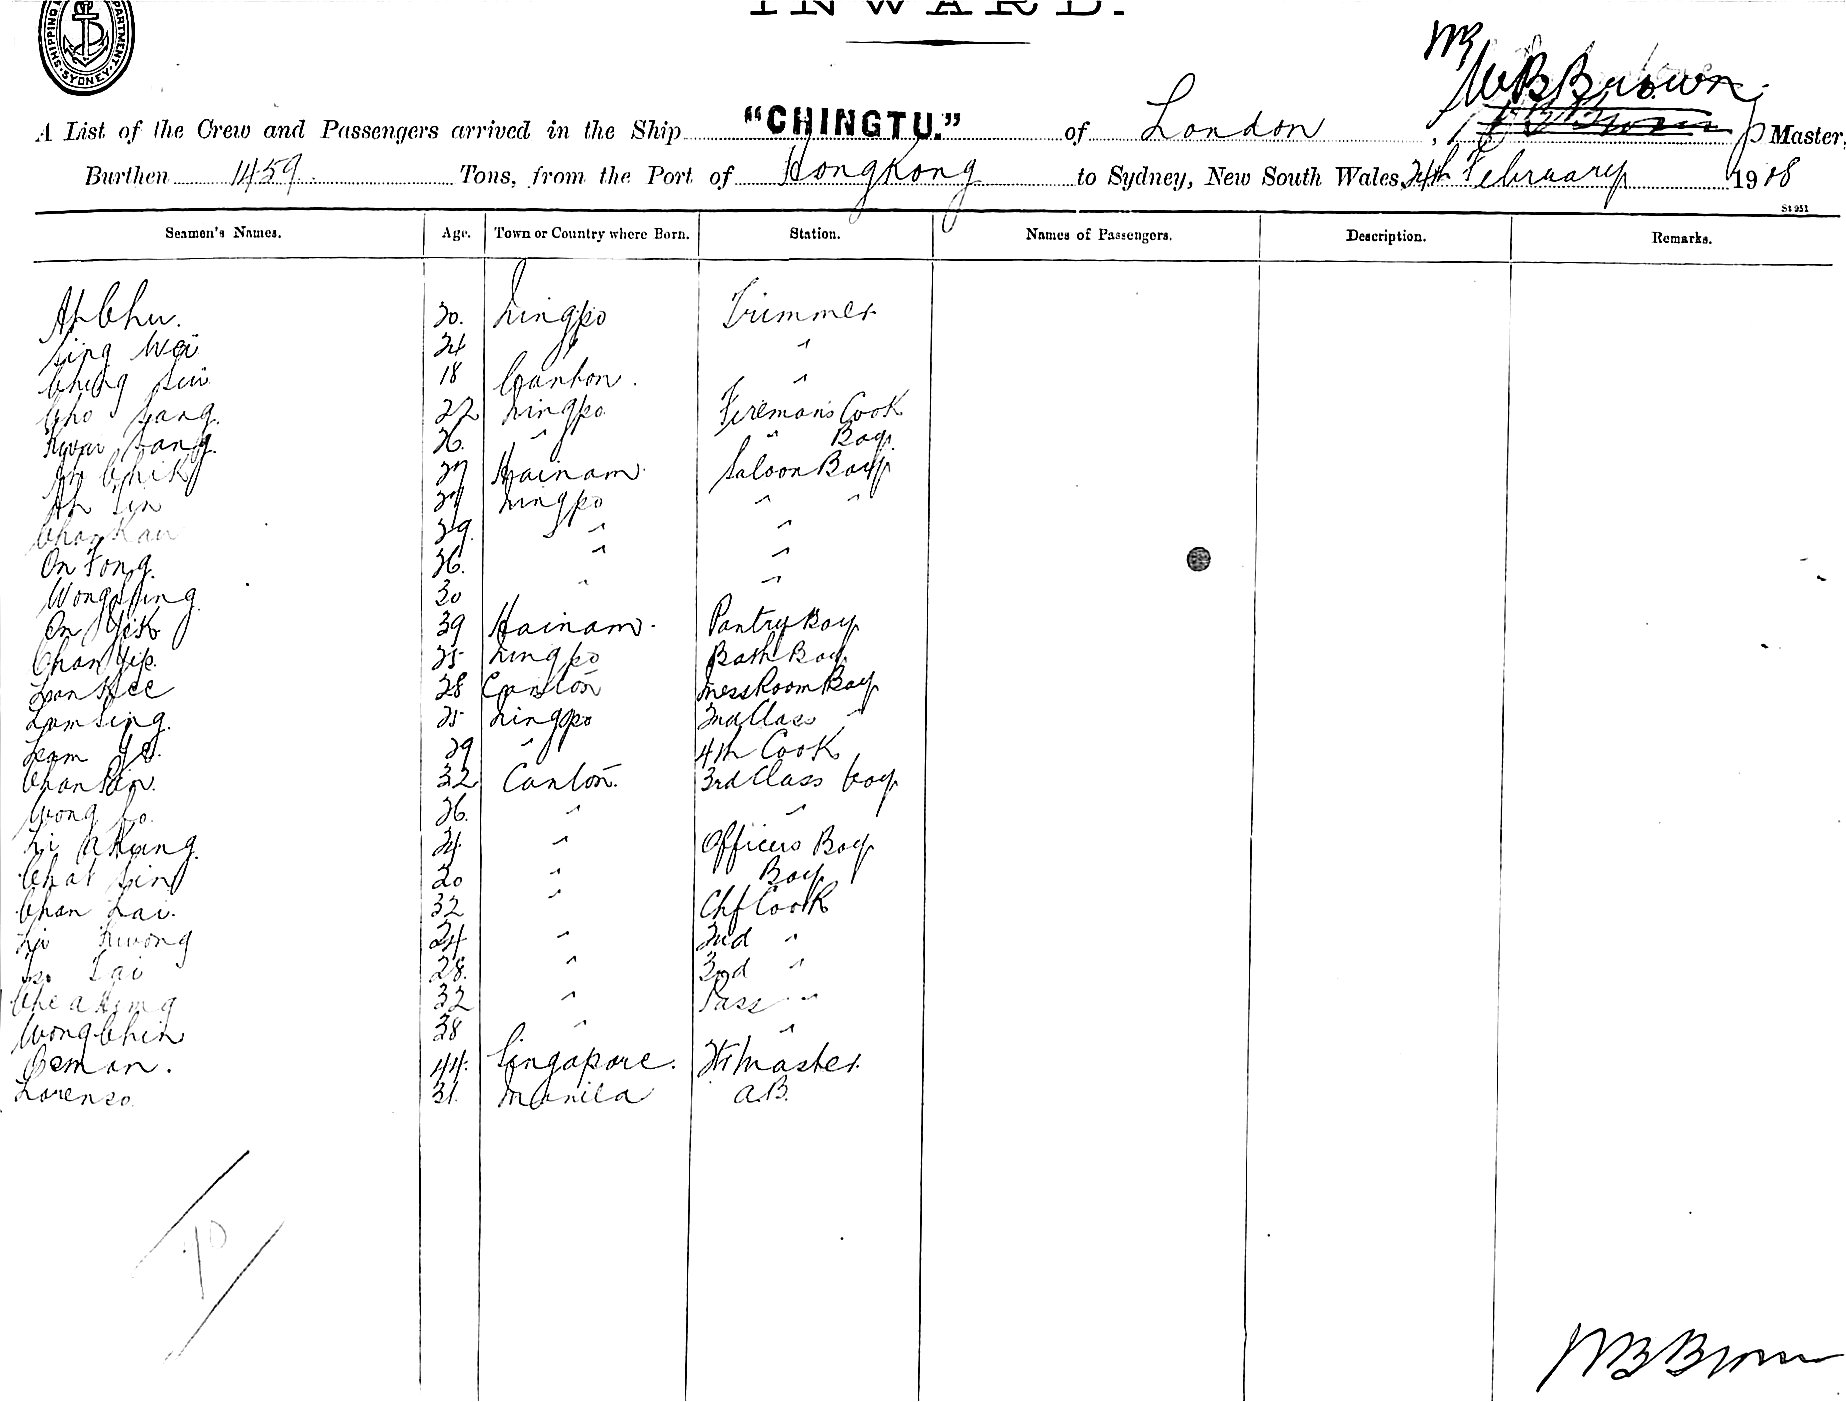 INWARD.
SHIPPING DEPARTMENT. SYDNEY
W B Brown
A List of the Crew and Passengers arrived in the Ship "CHINGTU." of London, Master,
Burthen 1459 Tons, from the Port of Hongkong to Sydney, New South Wales, 24th February 1908
St 951
Seamen's Names. Age. Town or Country where Born. Station. Names of Passengers. Description. Remarks.
Ah Chu. 20. Ningpo Trimmer
Sing Wei 24 " "
Ching Sui 18 Canton. "
Cho Sang. 22 Ningpo Fireman's Cook
Kwan Sang. 26. " " Boy
Ah Chik 27 Hainam. Saloon Boy
Ah Sin 27 Ningpo " "
Chan Kau 29. " "
On Fong. 26. " "
Wong Sing 30 " "
On Yik 39 Hainam. Pantry Boy
Chan Yip. 25 Ningpo Bath Boy
Lan Kee 28 Canton Mess Room Boy
Lam Sing. 25 Ningpo 2nd Class "
Leam 29 " 4th Cook
Chan Sin. 32 Canton. 3rd Class boy
Wong 26. " "
Li Kung 24. " Officers Boy
Chat Sin 20 " Boy
Chan Lai. 32 " Chf Cook
Li Kwong 24 " 2nd "
Tai 28. " 3rd "
32 " Pass "
Wong Chin 38 " "
Oeman. 44. Singapore. Master
Lorenso. 31. Manila A.B.
W B Brown